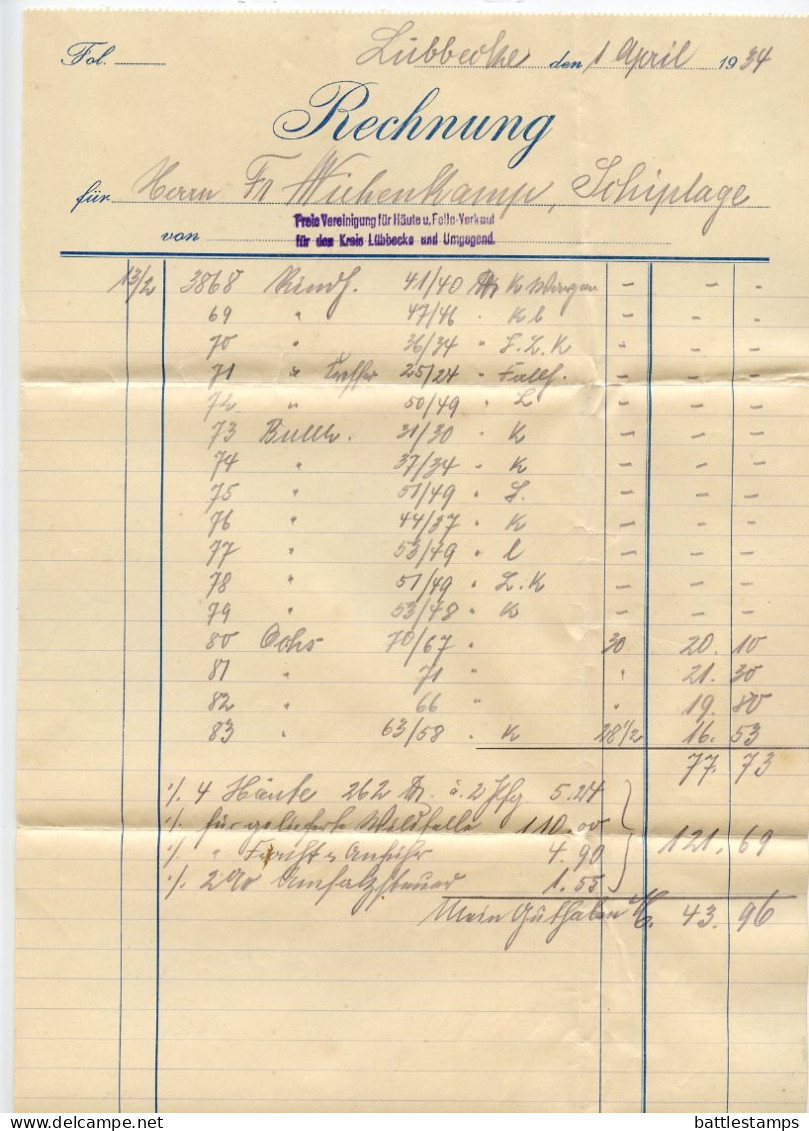 Fol. Lübbecke den 1 April 1934
Rechnung
für Herrn Fr Wiehenkamp, Schiplage
von Freie Vereinigung für Häute u. Felle-Verkauf
für den Kreis Lübbecke und Umgegend.
13/2 3868 Rindh. 41/40 K - - -
69 " 47/46 " K l - - -
70 " 36/34 " S. L. K - - -
71 " 25/24 " - - -
72 " 50/49 " L - - -
73 Bullh. 31/30 " K - - -
74 " 37/34 " K - - -
75 " 51/49 " S. - - -
76 " 44/37 " K - - -
77 " 53/49 " l - - -
78 " 51/49 " L. K - - -
79 " 53/48 " K - - -
80 Ochs 70/67 " 30 20. 10
81 " 71 " " 21. 30
82 " 66 " " 19. 80
83 " 63/58 " K 28 1/2 16. 53
77. 73
./. 4 Häute 262 ℔. à 2 Pfg 5.24
./. für gelieferte Wildfelle 110.00
./. " Fracht u Anfuhr 4.90 121. 69
./. 2% Umsatzsteuer 1.55
Mein Guthaben M. 43. 96
battlestamps